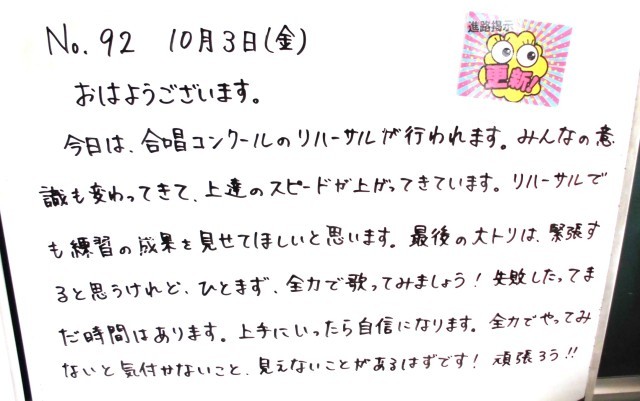 No.92 10月3日(金)
進路掲示
更新!
おはようございます。
今日は、合唱コンクールのリハーサルが行われます。みんなの意
識も変わってきて、上達のスピードが上がってきています。リハーサルで
も練習の成果を見せてほしいと思います。最後の大トリは、緊張す
ると思うけれど、ひとまず、全力で歌ってみましょう！失敗したってま
だ時間はあります。上手にいったら自信になります。全力でやってみ
ないと気付かないこと、見えないことがあるはずです！頑張ろう!!